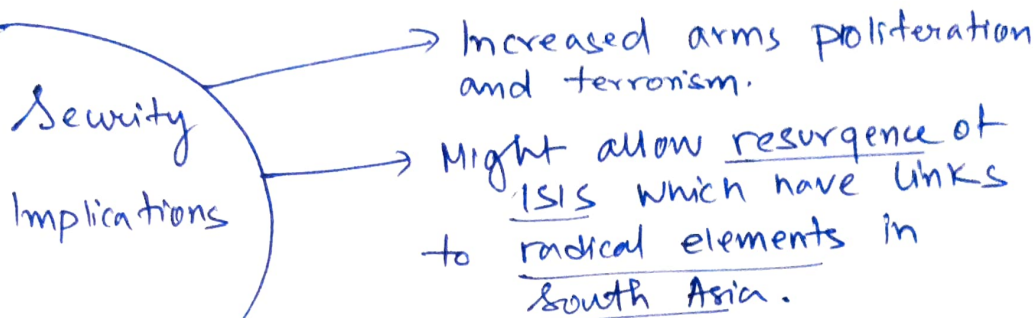 Security
Implications
Increased arms proliferation
and terrorism.
Might allow resurgence of
ISIS which have links
to radical elements in
South Asia.